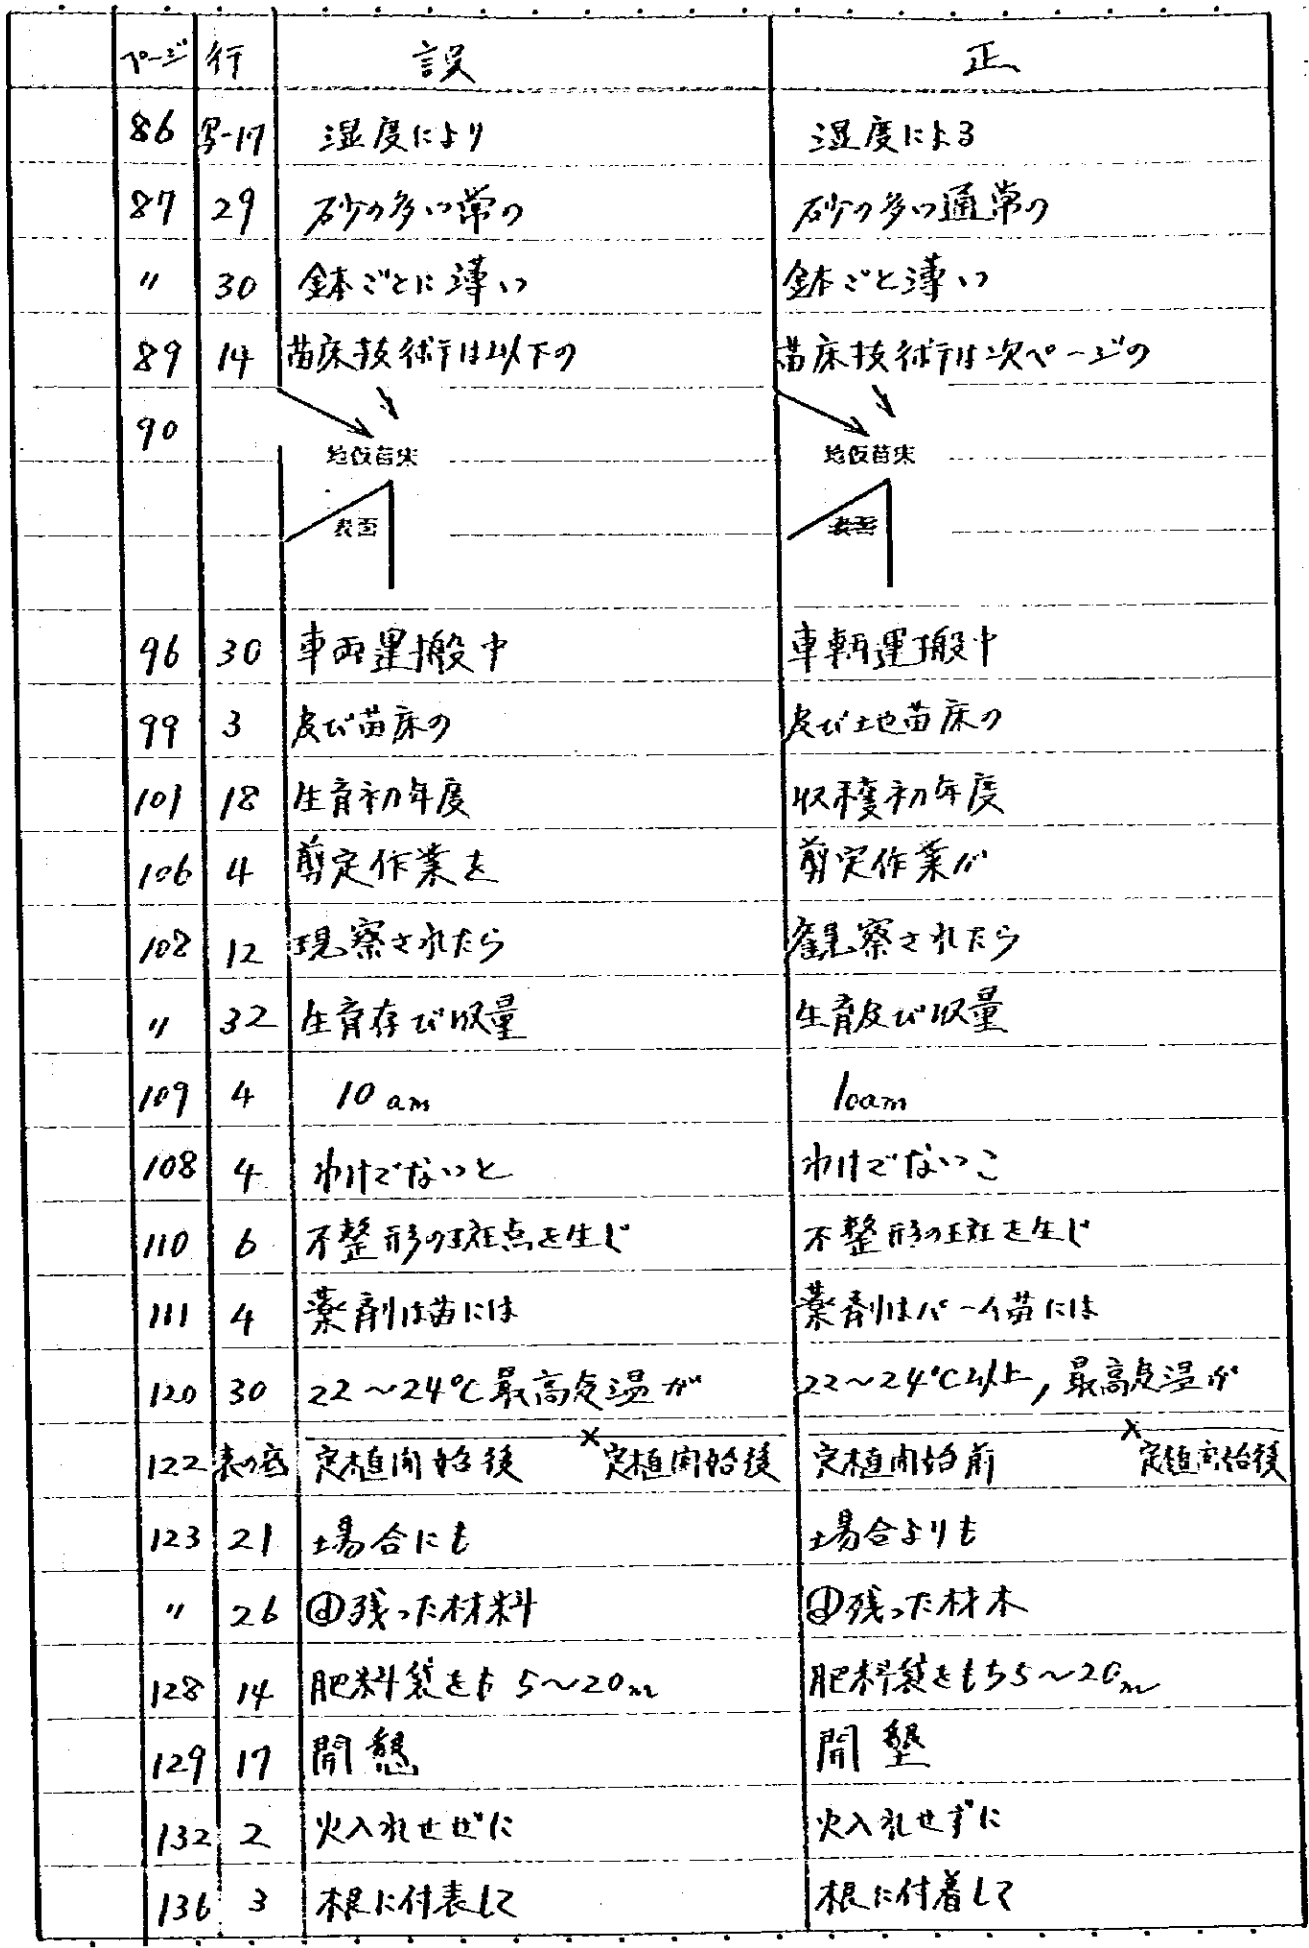 ページ 行 誤 正
86 写-17 湿度により 湿度による
87 29 砂の多い常の 砂の多い通常の
〃 30 鉢ごとに薄い 鉢ごと薄い
89 14 苗床技術は以下の 苗床技術は次ページの
90
地仮苗床 地仮苗床
表面 表面
96 30 車両運搬中 車輌運搬中
99 3 及び苗床の 及び地苗床の
101 18 生育初年度 収穫初年度
106 4 剪定作業を 剪定作業が
108 12 現察されたら 観察されたら
〃 32 生育存び収量 生育及び収量
109 4 10 am 10am
108 4 わけでないと わけでないこ
110 6 不整形の斑点を生じ 不整形の斑を生じ
111 4 薬剤は苗には 薬剤はパーム苗には
120 30 22〜24℃最高気温が 22〜24℃以上,最高気温が
122 表の 定植開始後 × 定植開始後 定植開始前 × 定植開始後
123 21 場合にも 場合よりも
〃 26 ⓓ残った材料 ⓓ残った材木
128 14 肥料袋をも 5〜20m 肥料袋をもち5〜20m
129 17 開懇 開墾
132 2 火入れせぜに 火入れせずに
136 3 根に付表して 根に付着して